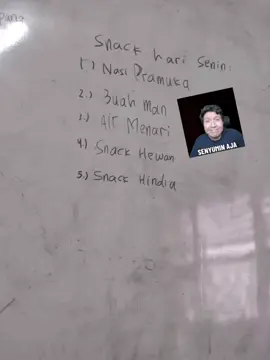 Snack hari Senin:
1.) Nasi Pramuka
2.) Buah man
3.) Air Menari
4) Snack Hewan
5.) Snack Hindia
SENYUMIN AJA